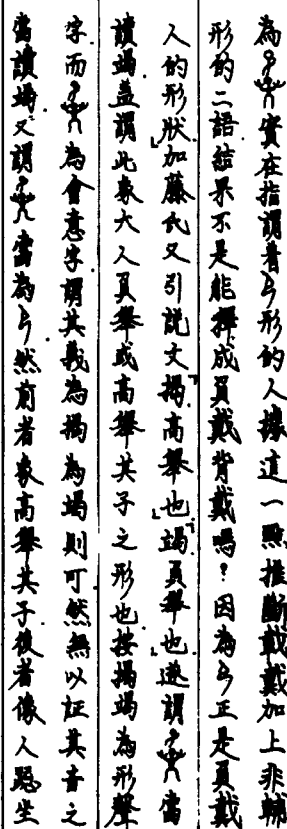 為實在指謂着形的人據這一點推斷戴戴加上非輔
形的二語結果不是能釋成負戴背戴嗎?因為正是負戴
人的形狀加藤氏又引說文「揭高舉也」「竭負舉也」遂謂當
讀竭蓋謂此象大人負舉或高舉其子之形也按揭竭為形聲
字而為會意字謂其義為揭為竭則可然無以証其音之
當讀竭又謂當為然前者象高舉其子後者像人跽坐